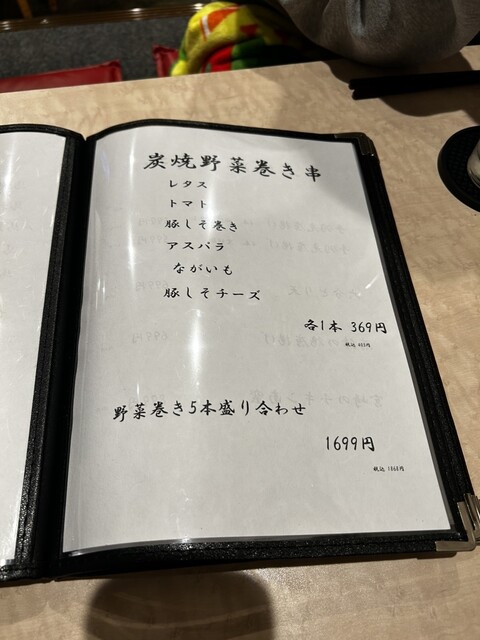 炭焼野菜巻き串
レタス
トマト
豚しそ巻き
アスパラ
ながいも
豚しそチーズ
各1本 369円
野菜巻き5本盛り合わせ
1699円
税込 1868円